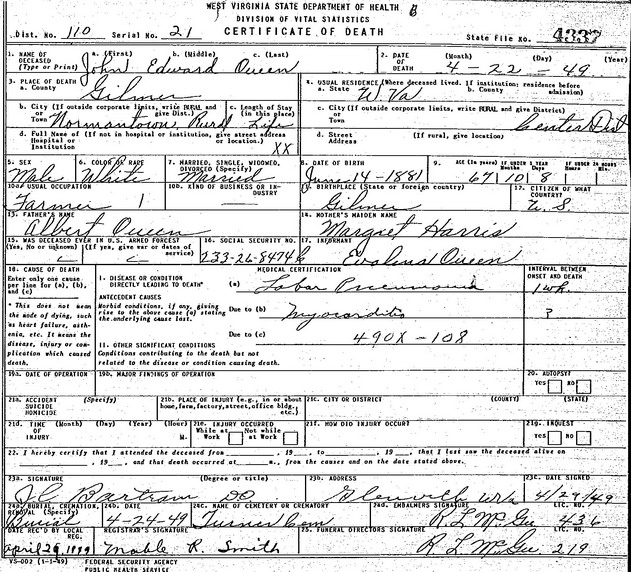 WEST VIRGINIA STATE DEPARTMENT OF HEALTH
DIVISION OF VITAL STATISTICS
Dist. No. 110 Serial No. 21 CERTIFICATE OF DEATH State File No. 4337
1. NAME OF DECEASED (Type or Print) a. (First) b. (Middle) c. (Last) John Edward Queen
2. DATE OF DEATH (Month) (Day) (Year) 4 - 22 - 49
3. PLACE OF DEATH a. County Gilmer
4. USUAL RESIDENCE (Where deceased lived. If institution: residence before admission) a. State W. Va b. County
b. City (If outside corporate limits, write RURAL and give Dist.) or Town Normantown, Rural
c. Length of Stay (in this place) Life
c. City (If outside corporate limits, write RURAL and give District) or Town Center Dist
d. Full Name of (If not in hospital or institution, give street address or location) Hospital or Institution XX
d. Street Address (If rural, give location.)
5. SEX Male
6. COLOR OR RACE White
7. MARRIED, SINGLE, WIDOWED, DIVORCED (Specify) Married
8. DATE OF BIRTH June 14 - 1881
9. AGE (In years) IF UNDER 1 YEAR IF UNDER 24 HOURS 67 10 8
10a. USUAL OCCUPATION Farmer 1
10b. KIND OF BUSINESS OR INDUSTRY
11. BIRTHPLACE (State or foreign country) Gilmer
12. CITIZEN OF WHAT COUNTRY? U. S.
13. FATHER'S NAME Albert Queen
14. MOTHER'S MAIDEN NAME Margret Harris
15. WAS DECEASED EVER IN U.S. ARMED FORCES? (Yes, No or unknown) (If yes, give war or dates of service)
16. SOCIAL SECURITY NO. 233-26-8474
17. INFORMANT Evalena Queen
18. CAUSE OF DEATH
Enter only one cause per line for (a), (b), and (c)
* This does not mean the mode of dying, such as heart failure, asthenia, etc. It means the disease, injury or complication which caused death.
MEDICAL CERTIFICATION
INTERVAL BETWEEN ONSET AND DEATH
I. DISEASE OR CONDITION DIRECTLY LEADING TO DEATH* (a) Lobar Pneumonia 1 wk.
ANTECEDENT CAUSES
Morbid conditions, if any, giving rise to the above cause (a) stating the underlying cause last.
Due to (b) Myocarditis ?
Due to (c) 490X - 108
II. OTHER SIGNIFICANT CONDITIONS
Conditions contributing to the death but not related to the disease or condition causing death.
19a. DATE OF OPERATION
19b. MAJOR FINDINGS OF OPERATION
20. AUTOPSY? Yes No
21a. ACCIDENT SUICIDE HOMICIDE (Specify)
21b. PLACE OF INJURY (e.g., in or about home, farm, factory, street, office bldg. etc.)
21c. CITY OR DISTRICT (COUNTY) (STATE)
21d. TIME OF INJURY (Month) (Day) (Year) (Hour) M.
21e. INJURY OCCURRED While at Work Not while at Work
21f. HOW DID INJURY OCCUR?
21g. INQUEST Yes No
22. I hereby certify that I attended the deceased from , 19 , to , 19 , that I last saw the deceased alive on
, 19 , and that death occurred at m., from the causes and on the date stated above.
23a. SIGNATURE (Degree or title) Bartram DO
23b. ADDRESS Glenville W Va
23c. DATE SIGNED 4/29/49
24a. BURIAL, CREMATION, REMOVAL (Specify) Burial
24b. DATE 4-24-49
24c. NAME OF CEMETERY OR CREMATORY Turner Cem
24d. EMBALMERS SIGNATURE R L McGee LIC. NO. 436
DATE REC'D BY LOCAL REG. April 29, 1949
REGISTRAR'S SIGNATURE Mable R. Smith
25. FUNERAL DIRECTORS SIGNATURE R L McGee LIC. NO. 219
VS-002 (1-1-49) FEDERAL SECURITY AGENCY
PUBLIC HEALTH SERVICE